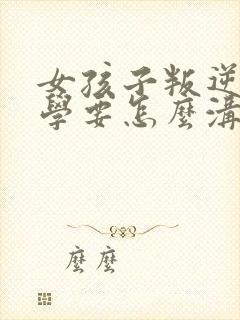 女孩子叛逆
學要怎麼溝
麼麼